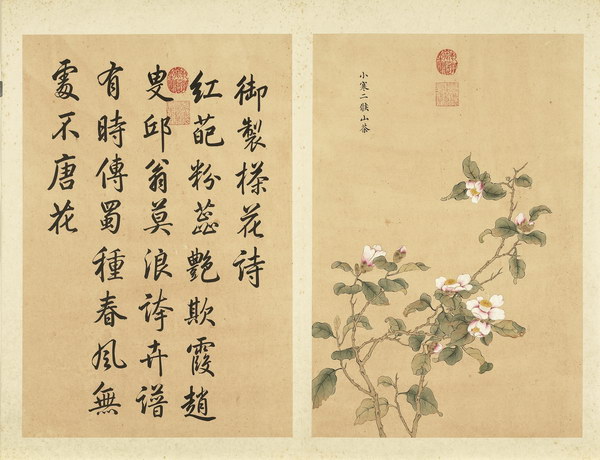 小寒二候山茶
御製花詩
紅葩粉蕊艷欺霞趙
叟邱翁莫浪誇卉譜
有時傳蜀種春風無
處不唐花